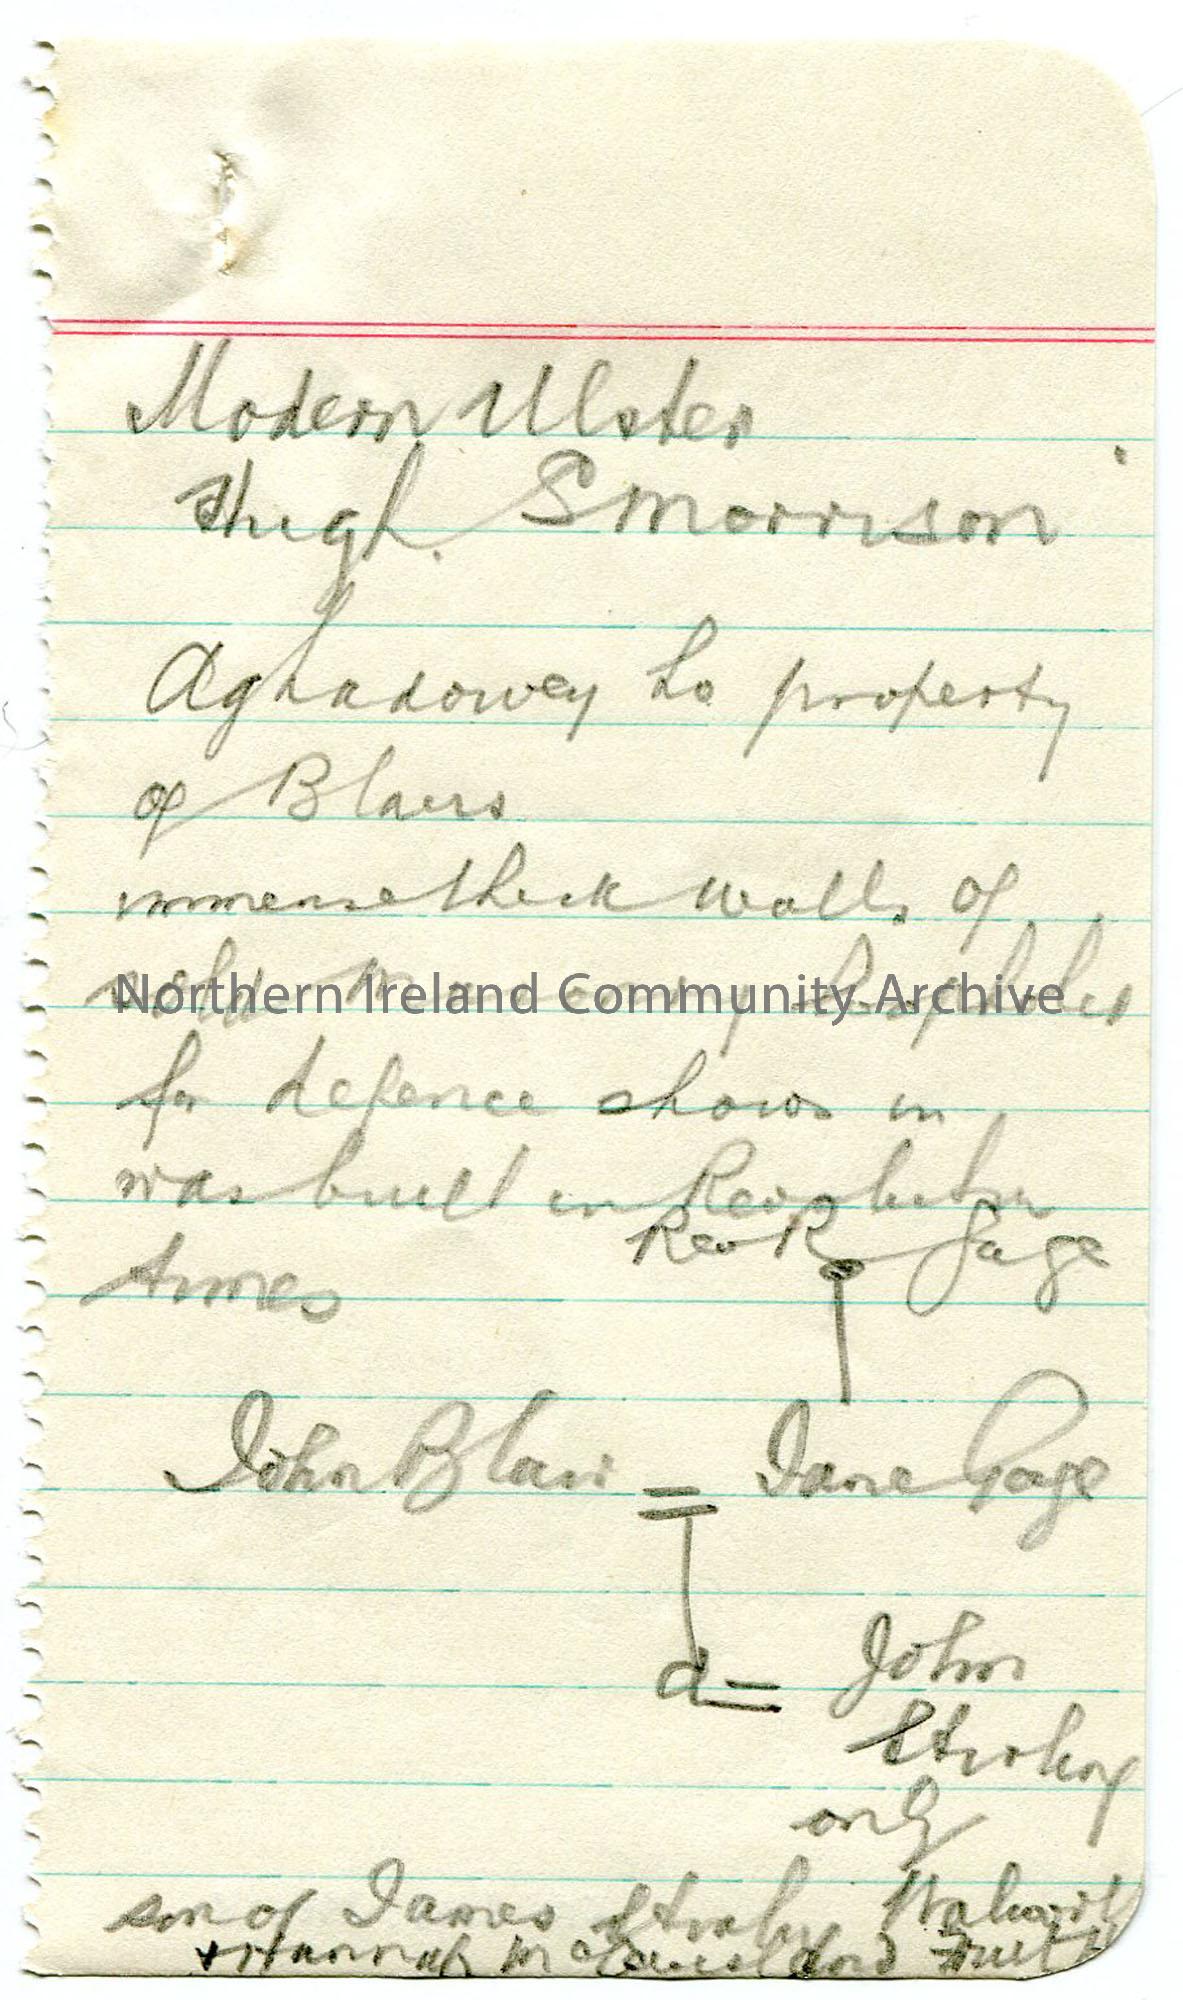 Modern Ulster
Hugh. S Morrison
Aghadowey Ho property
of Blairs
immense thick walls of
solid masonry loopholes
for defence shows in
was built in Revolution
times
Rev R Gage
John Blair = Jane Gage
d = John
only
son of James
+ Hannah
Northern Ireland Community Archive